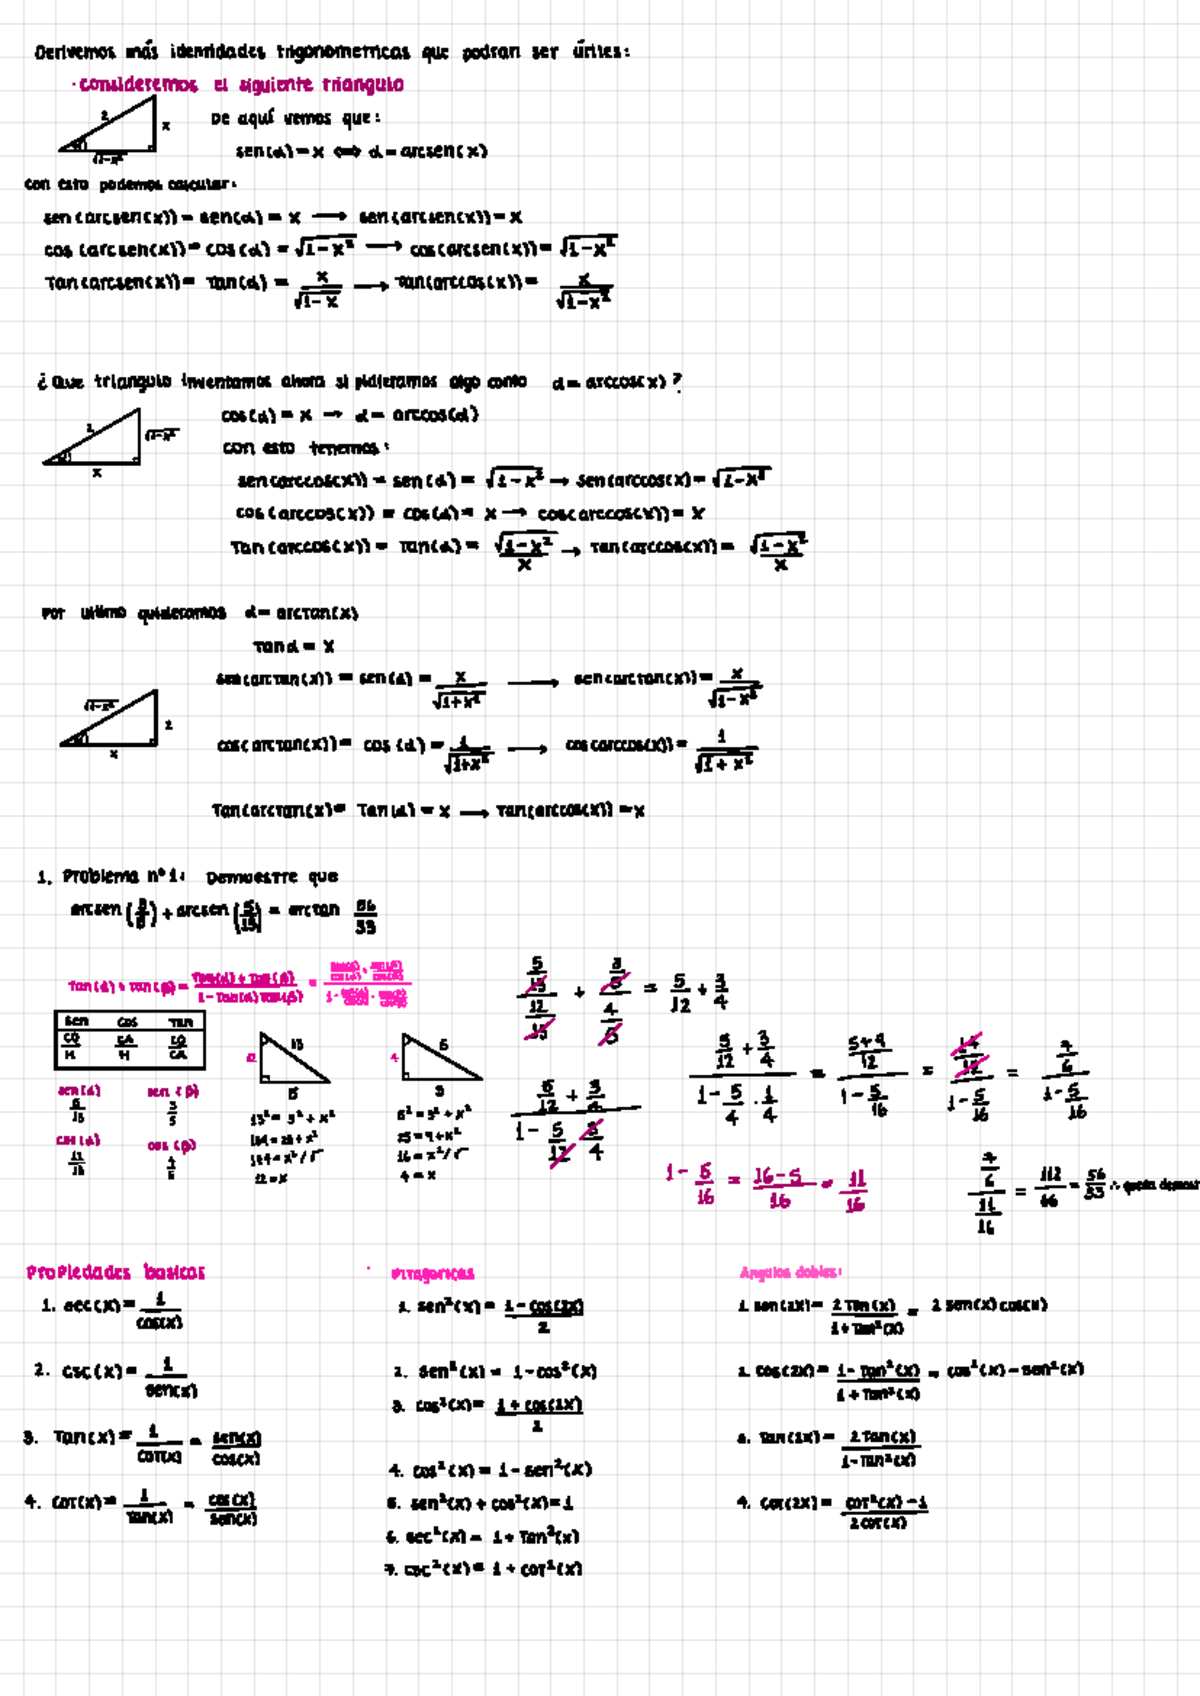 Derivemos más identidades trigonometricas que podran ser útiles:
· consideremos el siguiente triangulo
De aquí vemos que:
sen(α) = x ⟺ α = arcsen(x)
con esto podemos calcular:
sen(arcsen(x)) = sen(α) = x ⟶ sen(arcsen(x)) = x
cos(arcsen(x)) = cos(α) = √(1-x²) ⟶ cos(arcsen(x)) = √(1-x²)
Tan(arcsen(x)) = Tan(α) = x/√(1-x) ⟶ Tan(arccos(x)) = x/√(1-x²)
¿Que triangulo inventamos ahora si pidieramos algo como α = arccos(x)?
cos(α) = x → α = arccos(α)
con esto tenemos:
sen(arccos(x)) = sen(α) = √(1-x²) → sen(arccos(x) = √(1-x²)
cos(arccos(x)) = cos(α) = x → cos(arccos(x)) = x
Tan(arccos(x)) = Tan(α) = √(1-x²)/x → Tan(arccos(x)) = √(1-x²)/x
Por ultimo quisieramos α = arctan(x)
Tan α = x
sen(arctan(x)) = sen(α) = x/√(1+x²) ⟶ sen(arctan(x)) = x/√(1-x²)
cos(arctan(x)) = cos(α) = 1/√(1+x²) ⟶ cos(arccos(x)) = 1/√(1+x²)
Tan(arctan(x) = Tan(α) = x ⟶ Tan(arccos(x)) = x
1. Problema n° 1: Demuestre que
arcsen(3/5) + arcsen(5/13) = arctan 56/33
Tan(α) + Tan(β) = Tan(α) + Tan(β) / 1 - Tan(α) Tan(β) =
sen cos Tan
CO/H CA/H CO/CA
sen(α) sen(β)
5/13 3/5
cos(α) cos(β)
12/13 4/5
13² = 5² + x²
169 = 25 + x²
144 = x² / √
12 = x
5² = 3² + x²
25 = 9 + x²
16 = x² / √
4 = x
5/13 / 12/13 + 3/5 / 4/5 = 5/12 + 3/4
5/12 + 3/4 / 1 - 5/12 · 3/4
5/12 + 3/4 / 1 - 5/4 · 1/4 = 5+9/12 / 1 - 5/16 = 14/12 / 1 - 5/16 = 7/6 / 1 - 5/16
1 - 5/16 = 16-5/16 = 11/16
7/6 / 11/16 = 112/66 = 56/33 ∴ queda
Propiedades basicos
1. sec(x) = 1/cos(x)
2. csc(x) = 1/sen(x)
3. Tan(x) = 1/cot(x) = sen(x)/cos(x)
4. cot(x) = 1/Tan(x) = cos(x)/sen(x)
Pitagoricas
1. sen²(x) = 1-cos(2x)/2
2. sen²(x) = 1-cos²(x)
3. cos²(x) = 1+cos(2x)/2
4. cos²(x) = 1-sen²(x)
5. sen²(x) + cos²(x) = 1
6. sec²(x) = 1 + Tan²(x)
7. csc²(x) = 1 + cot²(x)
Angulos dobles:
1. sen(2x) = 2Tan(x)/1+Tan²(x) = 2 sen(x) cos(x)
2. cos(2x) = 1-Tan²(x)/1+Tan²(x) = cos²(x) - sen²(x)
3. Tan(2x) = 2Tan(x)/1-Tan²(x)
4. cot(2x) = cot²(x)-1/2cot(x)